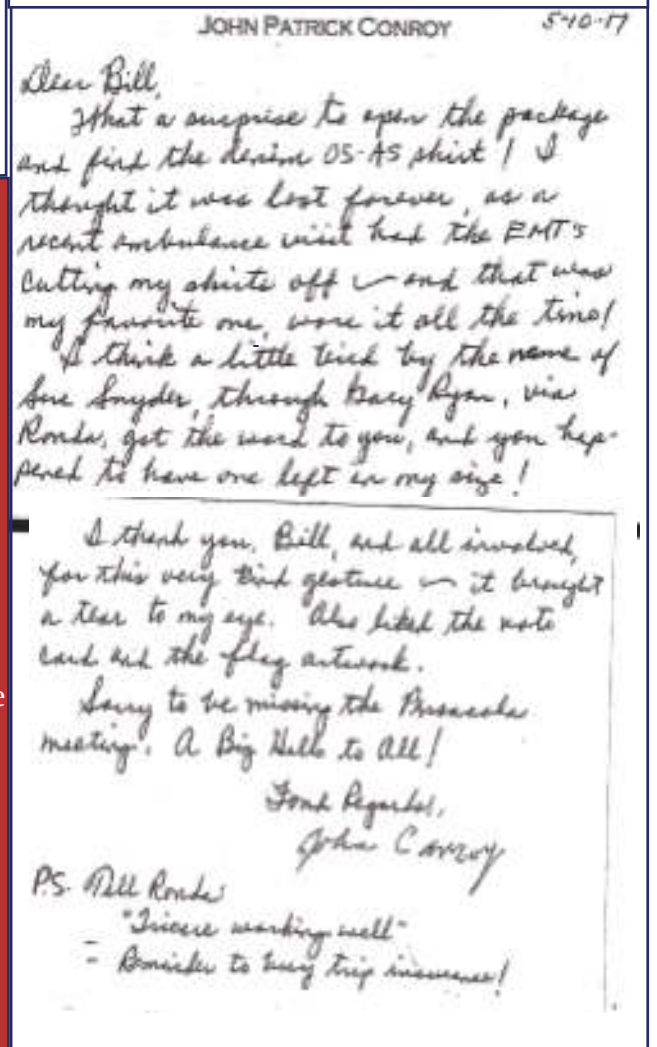 JOHN PATRICK CONROY 5-10-17
Dear Bill,
What a surprise to open the package
and find the denim OS-AS shirt! I
thought it was lost forever, as a
recent ambulance visit had the EMT's
cutting my shirts off ~ and that was
my favorite one, wore it all the time!
I think a little bird by the name of
Sue Snyder, through Gary Ryan, via
Ronda, got the word to you, and you hap-
pened to have one left in my size!
I thank you, Bill, and all involved,
for this very kind gesture ~ it brought
a tear to my eye. Also liked the note
card and the flag artwork.
Sorry to be missing the Pensacola
meeting. A Big Hello to All!
Fond Regards,
John Conroy
P.S. Tell Ronda
"Tricare working well"
- Reminder to buy trip insurance!
e